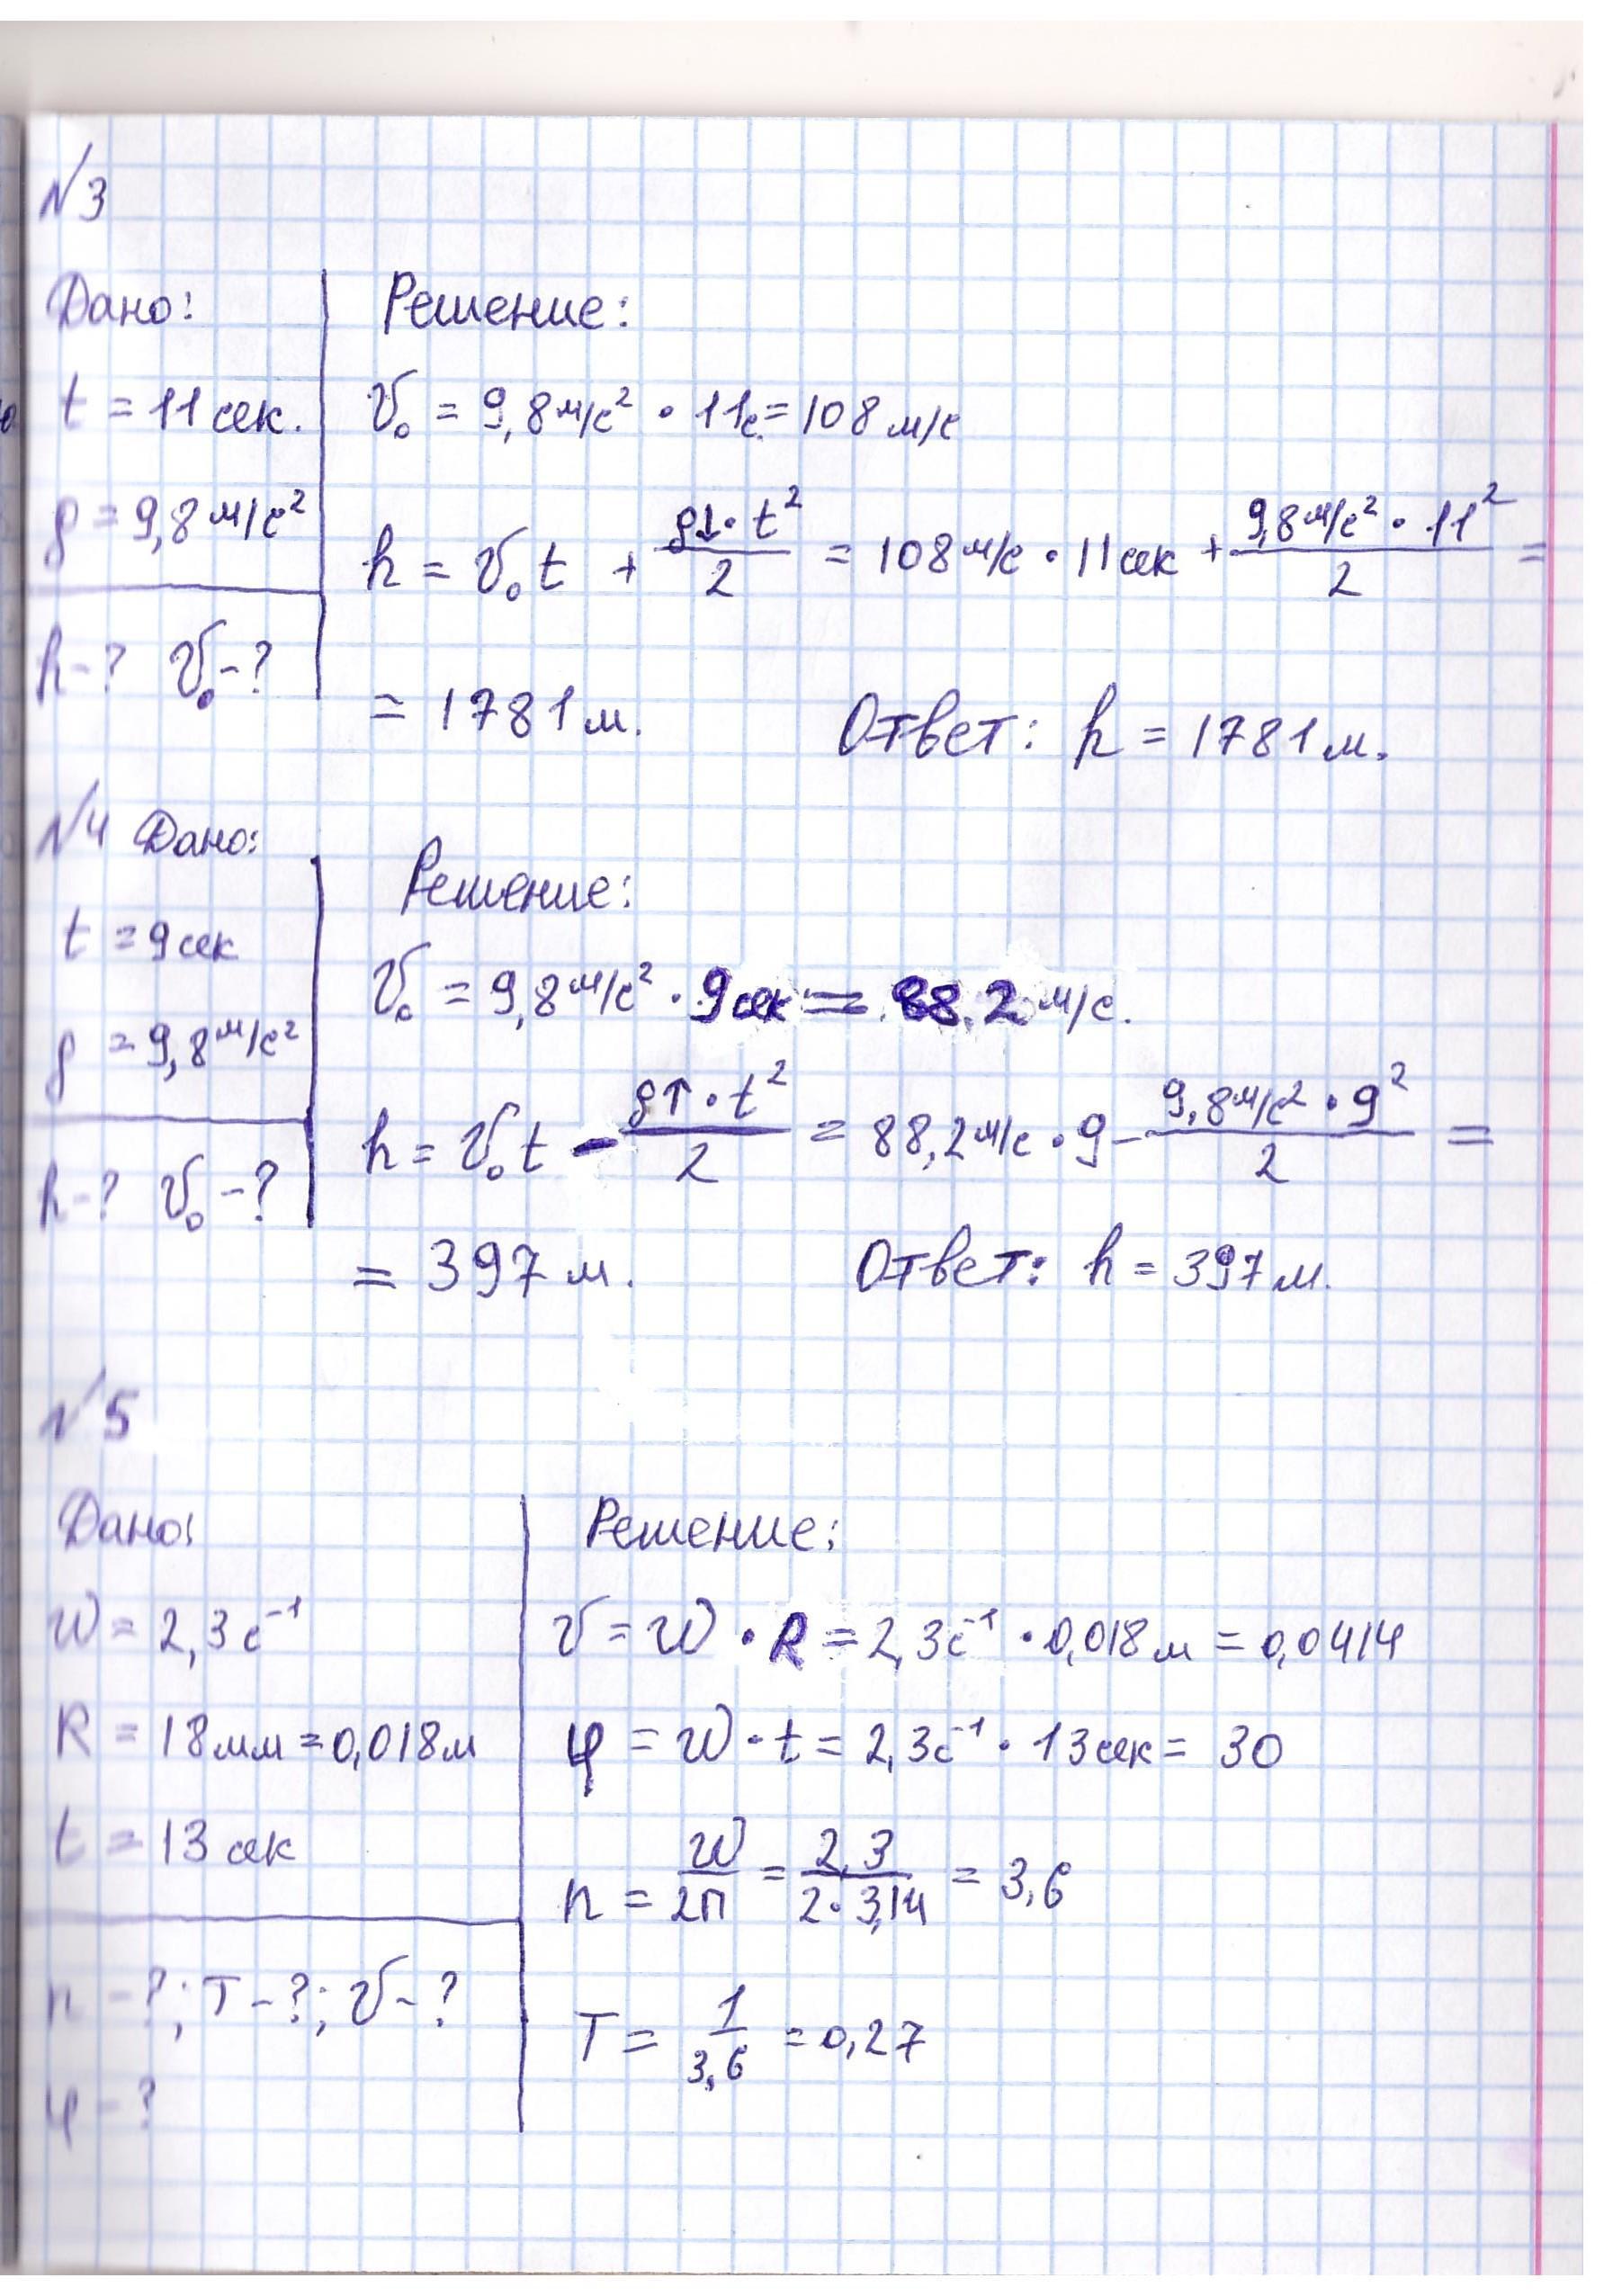 №3
Дано:
t = 11 сек.
g = 9,8 м/с²
h - ? V₀ - ?
Решение:
V₀ = 9,8 м/с² · 11с = 108 м/с
h = V₀t + g↓·t²/2 = 108 м/с · 11 сек + 9,8 м/с² · 11²/2 =
= 1781 м.
Ответ: h = 1781 м.
№4 Дано:
t = 9 сек
g = 9,8 м/с²
h - ? V₀ - ?
Решение:
V₀ = 9,8 м/с² · 9 сек = 88.2 м/с.
h = V₀t - g↑·t²/2 = 88,2 м/с · 9 - 9,8 м/с² · 9²/2 =
= 397 м.
Ответ: h = 397 м.
№5
Дано:
W = 2,3 с⁻¹
R = 18 мм = 0,018 м
t = 13 сек
n - ?; T - ?; V - ?
φ - ?
Решение:
V = W · R = 2,3 с⁻¹ · 0,018 м = 0,0414
φ = W · t = 2,3 с⁻¹ · 13 сек = 30
n = W/2П = 2,3/2·3,14 = 3,6
T = 1/3,6 = 0,27